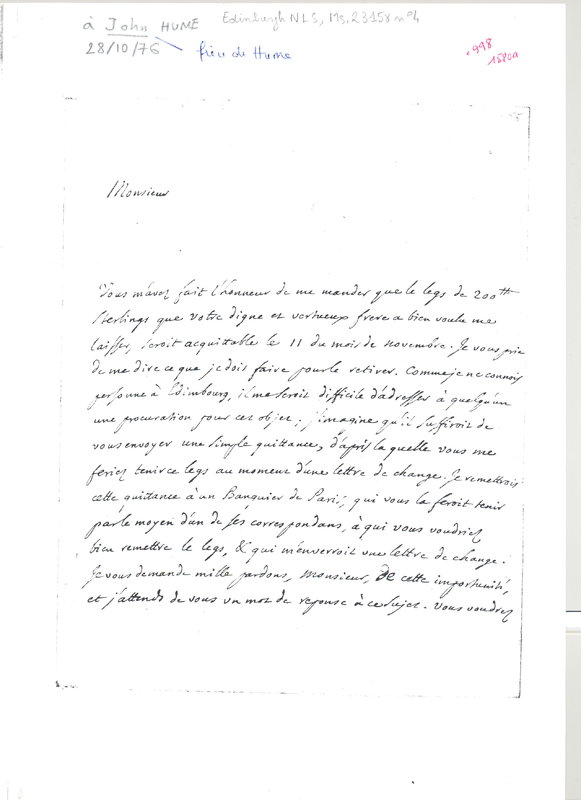 à John HUME Edinburgh NLS, Ms. 23158 n°4
28/10/76 frère de Hume
Monsieur
Vous m'avez fait l'honneur de me mander que le legs de 200tt
Sterlings que votre digne et vertueux frere a bien voulu me
laisser, seroit acquittable le 11 du mois de novembre. Je vous prie
de me dire ce que je dois faire pour le retirer. Comme je ne connois
personne à Edimbourg, il me seroit difficile d'adresser à quelqu'un
une procuration pour cet objet; j'imagine qu'il suffiroit de
vous envoyer une simple quittance, d'après laquelle vous me
feriez tenir ce legs au moment d'une lettre de change. Je remettrois
cette quittance à un Banquier de Paris, qui vous la feroit tenir
par le moyen d'un de ses correspondans, à qui vous voudriez
bien remettre le legs, & qui m'enverroit une lettre de change.
Je vous demande mille pardons, Monsieur, de cette importunité,
et j'attends de vous un mot de reponse à ce sujet. Vous voudrez